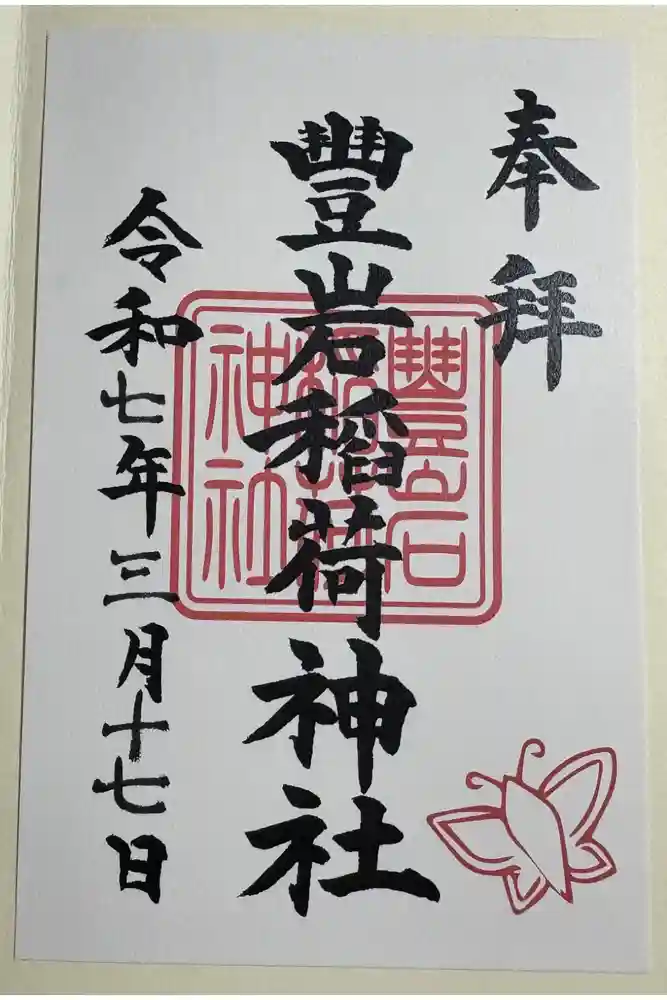 奉拝
豐岩稲荷神社
豐岩
稲荷
神社
令和七年三月十七日